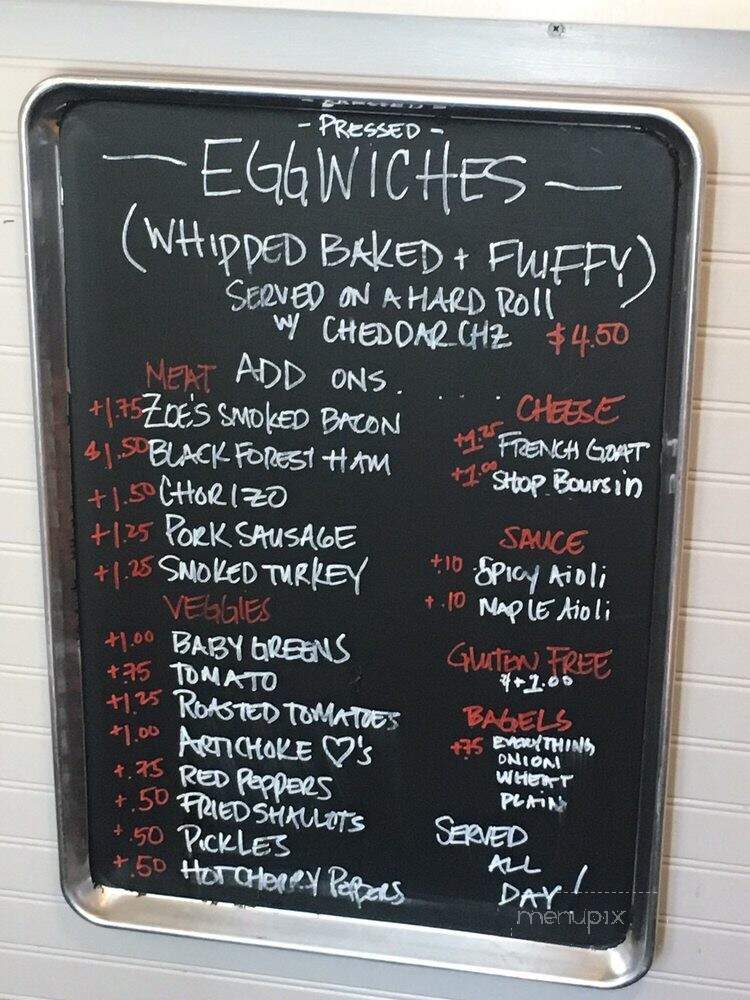 - PRESSED -
— EGGWICHES —
(WHIPPED BAKED + FLUFFY)
SERVED ON A HARD ROll
W/ CHEDDAR CHZ $4.50
MEAT ADD ONS . . . . .
+1.75 ZOE'S SMOKED BACON
$1.50 BLACK FOREST HAM
+1.50 CHORIZO
+1.25 PORK SAUSAGE
+1.25 SMOKED TURKEY
VEGGIES
+1.00 BABY GREENS
+.75 TOMATO
+1.25 ROASTED TOMATOES
+1.00 ARTICHOKE ♡'s
+.75 RED PEPPERS
+.50 FRIED SHALLOTS
+.50 PICKLES
+.50 HOT CHERRY PEPPERS
CHEESE
+1.25 FRENCH GOAT
+1.00 SHOP BOURSIN
SAUCE
+10 SPICY AiOli
+.10 MAPLE AiOli
GLUTEN FREE
$+1.00
BAGELS
+75 EVERYTHING
ONION
WHEAT
PLAIN
SERVED
ALL
DAY!
menupix